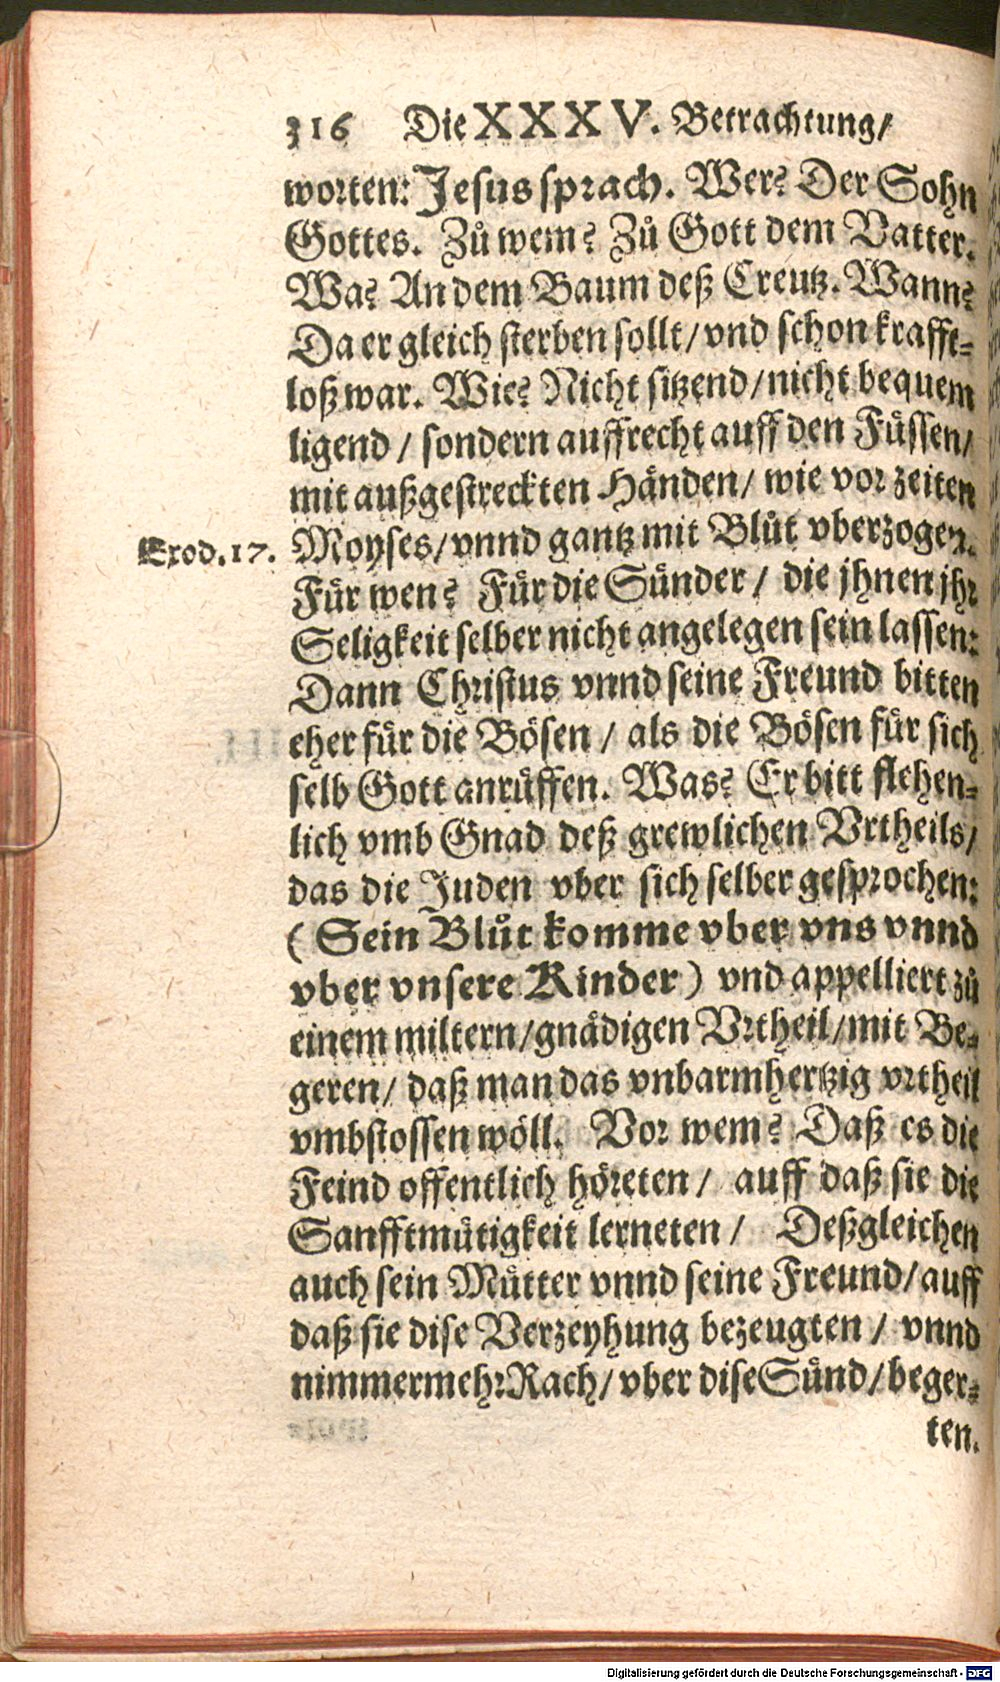 316 Die XXXV. Betrachtung/
worten: Jesus sprach. Wer? Der Sohn
Gottes. Zů wem? Zů Gott dem Vatter.
Wa? An dem Baum deß Creutz. Wann?
Da er gleich sterben sollt/ vnd schon krafft-
loß war. Wie? Nicht sitzend/ nicht bequem
ligend/ sondern auffrecht auff den Füssen/
mit außgestreckten Händen/ wie vor zeiten
Exod. 17. Moyses/ vnnd gantz mit Blůt vberzogen.
Für wen? Für die Sünder/ die jhnen jhr
Seligkeit selber nicht angelegen sein lassen:
Dann Christus vnnd seine Freund bitten
eher für die Bösen/ als die Bösen für sich
selb Gott anrüffen. Was? Er bitt flehen-
lich vmb Gnad deß grewlichen Vrtheils/
das die Juden vber sich selber gesprochen:
(Sein Blůt komme vber vns vnnd
vber vnsere Kinder) vnd appelliert zů
einem miltern/ gnädigen Vrtheil/ mit Be-
geren/ daß man das vnbarmhertzig vrtheil
vmbstossen wöll. Vor wem? Daß es die
Feind offentlich höreten/ auff daß sie die
Sanfftmütigkeit lerneten/ Deßgleichen
auch sein Můtter vnnd seine Freund/ auff
daß sie dise Verzeyhung bezeugten/ vnnd
nimmermehr Rach/ vber dise Sünd/ beger-
ten.
Digitalisierung gefördert durch die Deutsche Forschungsgemeinschaft - DFG